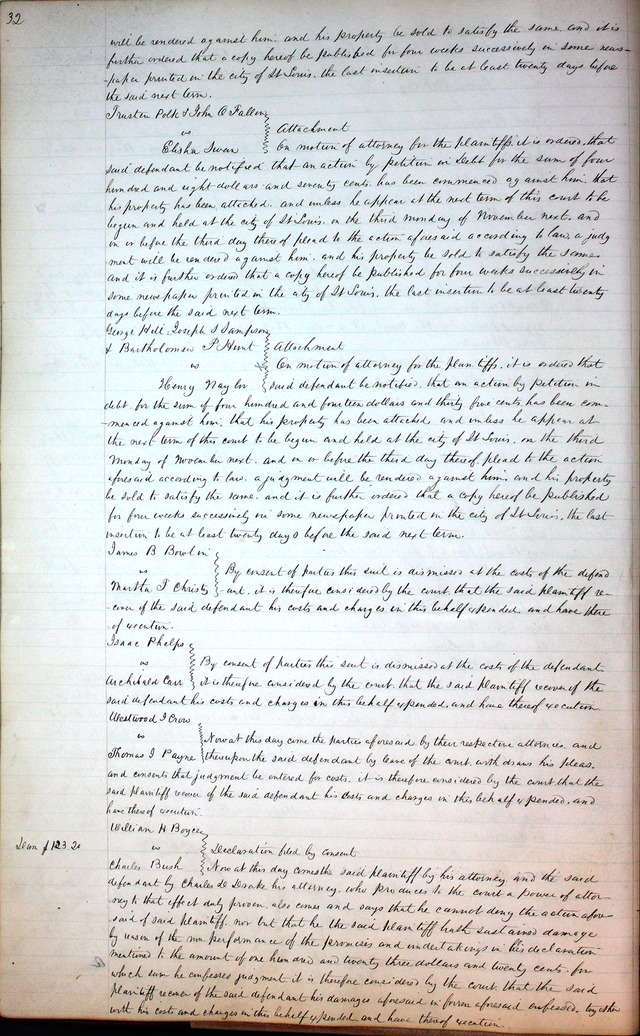 32
will be rendered against him. and his property be sold to satisfy the same and it is
further ordered that a copy hereof be published for four weeks successively in some news-
paper printed in the city of St Louis. the last insertion to be at least twenty days before
the said next term.
Trusten Polk & John O Fallon
vs
Attachment
Elisha Swan
On motion of attorney for the plaintiffs. it is ordered. that
said defendant be notified that an action by petition in Debt for the sum of four
hundred and eight dollars and seventy cents. has been commenced against him. that
his property has been attached. and unless he appear at the next term of this court to be
begun and held at the city of St Louis. on the third monday of November next. and
on or before the third day thereof plead to the action aforesaid according to law, a judg
ment will be rendered against him. and his property be sold to satisfy the same.
and it is further ordered that a copy hereof be published for four weeks successively in
some newspaper printed in the city of St Louis. the last insertion to be at least twenty
days before the said next term.
George Hill. Joseph S Sampson
& Bartholomew P. Hunt
Attachment
vs
On motion of attorney for the plaintiffs. it is ordered that
Henry Naylor
said defendant be notified. that an action by petition in
debt. for the sum of four hundred and fourteen dollars and thirty five cents. has been com-
menced against him, that his property has been attached and unless he appear at
the next term of this court to be begun and held at the city of St Louis. on the third
Monday of November next. and on or before the third day thereof, plead to the action
aforesaid according to law. a judgment will be rendered against him. and his property
be sold to satisfy the same. and it is further ordered that a copy hereof be published
for four weeks successively in some newspaper printed in the city of St Louis. the last
insertion to be at least twenty days before the said next term.
James B Bowlin
vs
By consent of parties this suit is dismissed at the costs of the defend
Martha T Christy
ant. it is therefore considered by the court. that the said plaintiff re-
cover of the said defendant his costs and charges in this behalf expended and have there
of execution.
Isaac Phelps
vs
By consent of parties this suit is dismissed at the costs of the defendant
Archibald Carr
it is therefore considered by the court. that the said plaintiff recover of the
said defendant his costs and charges in this behalf expended. and have thereof execution
Westwood I Crow
vs
Now at this day come the parties aforesaid by their respective attornies. and
Thomas J Payne
thereupon the said defendant by leave of the court. with draws his pleas.
and consents that judgment be entered for costs. it is therefore considered by the court that the
said plaintiff recover of the said defendant his costs and charges in this behalf expended. and
have thereof execution.
William H Boyce
vs
Declaration filed by consent
$123 20
Charles Bush
Now at this day comes the said plaintiff by his attorney and the said
defendant by Charles his attorney. who produces to the court a power of attor
ney to that effect duly proven. also comes and says that he cannot deny the action afore
said of said plaintiff. nor but that he the said plaintiff hath sustained damage
by reason of the non performance of the promises and undertakings in his declaration
mentioned to the amount of one hundred and twenty three dollars and twenty cents. for
which sum he confesses judgment it is therefore considered by the court. that the said
plaintiff recover of the said defendant his damages aforesaid in form aforesaid confessed. together
with his costs and charges in this behalf expended and have thereof execution.